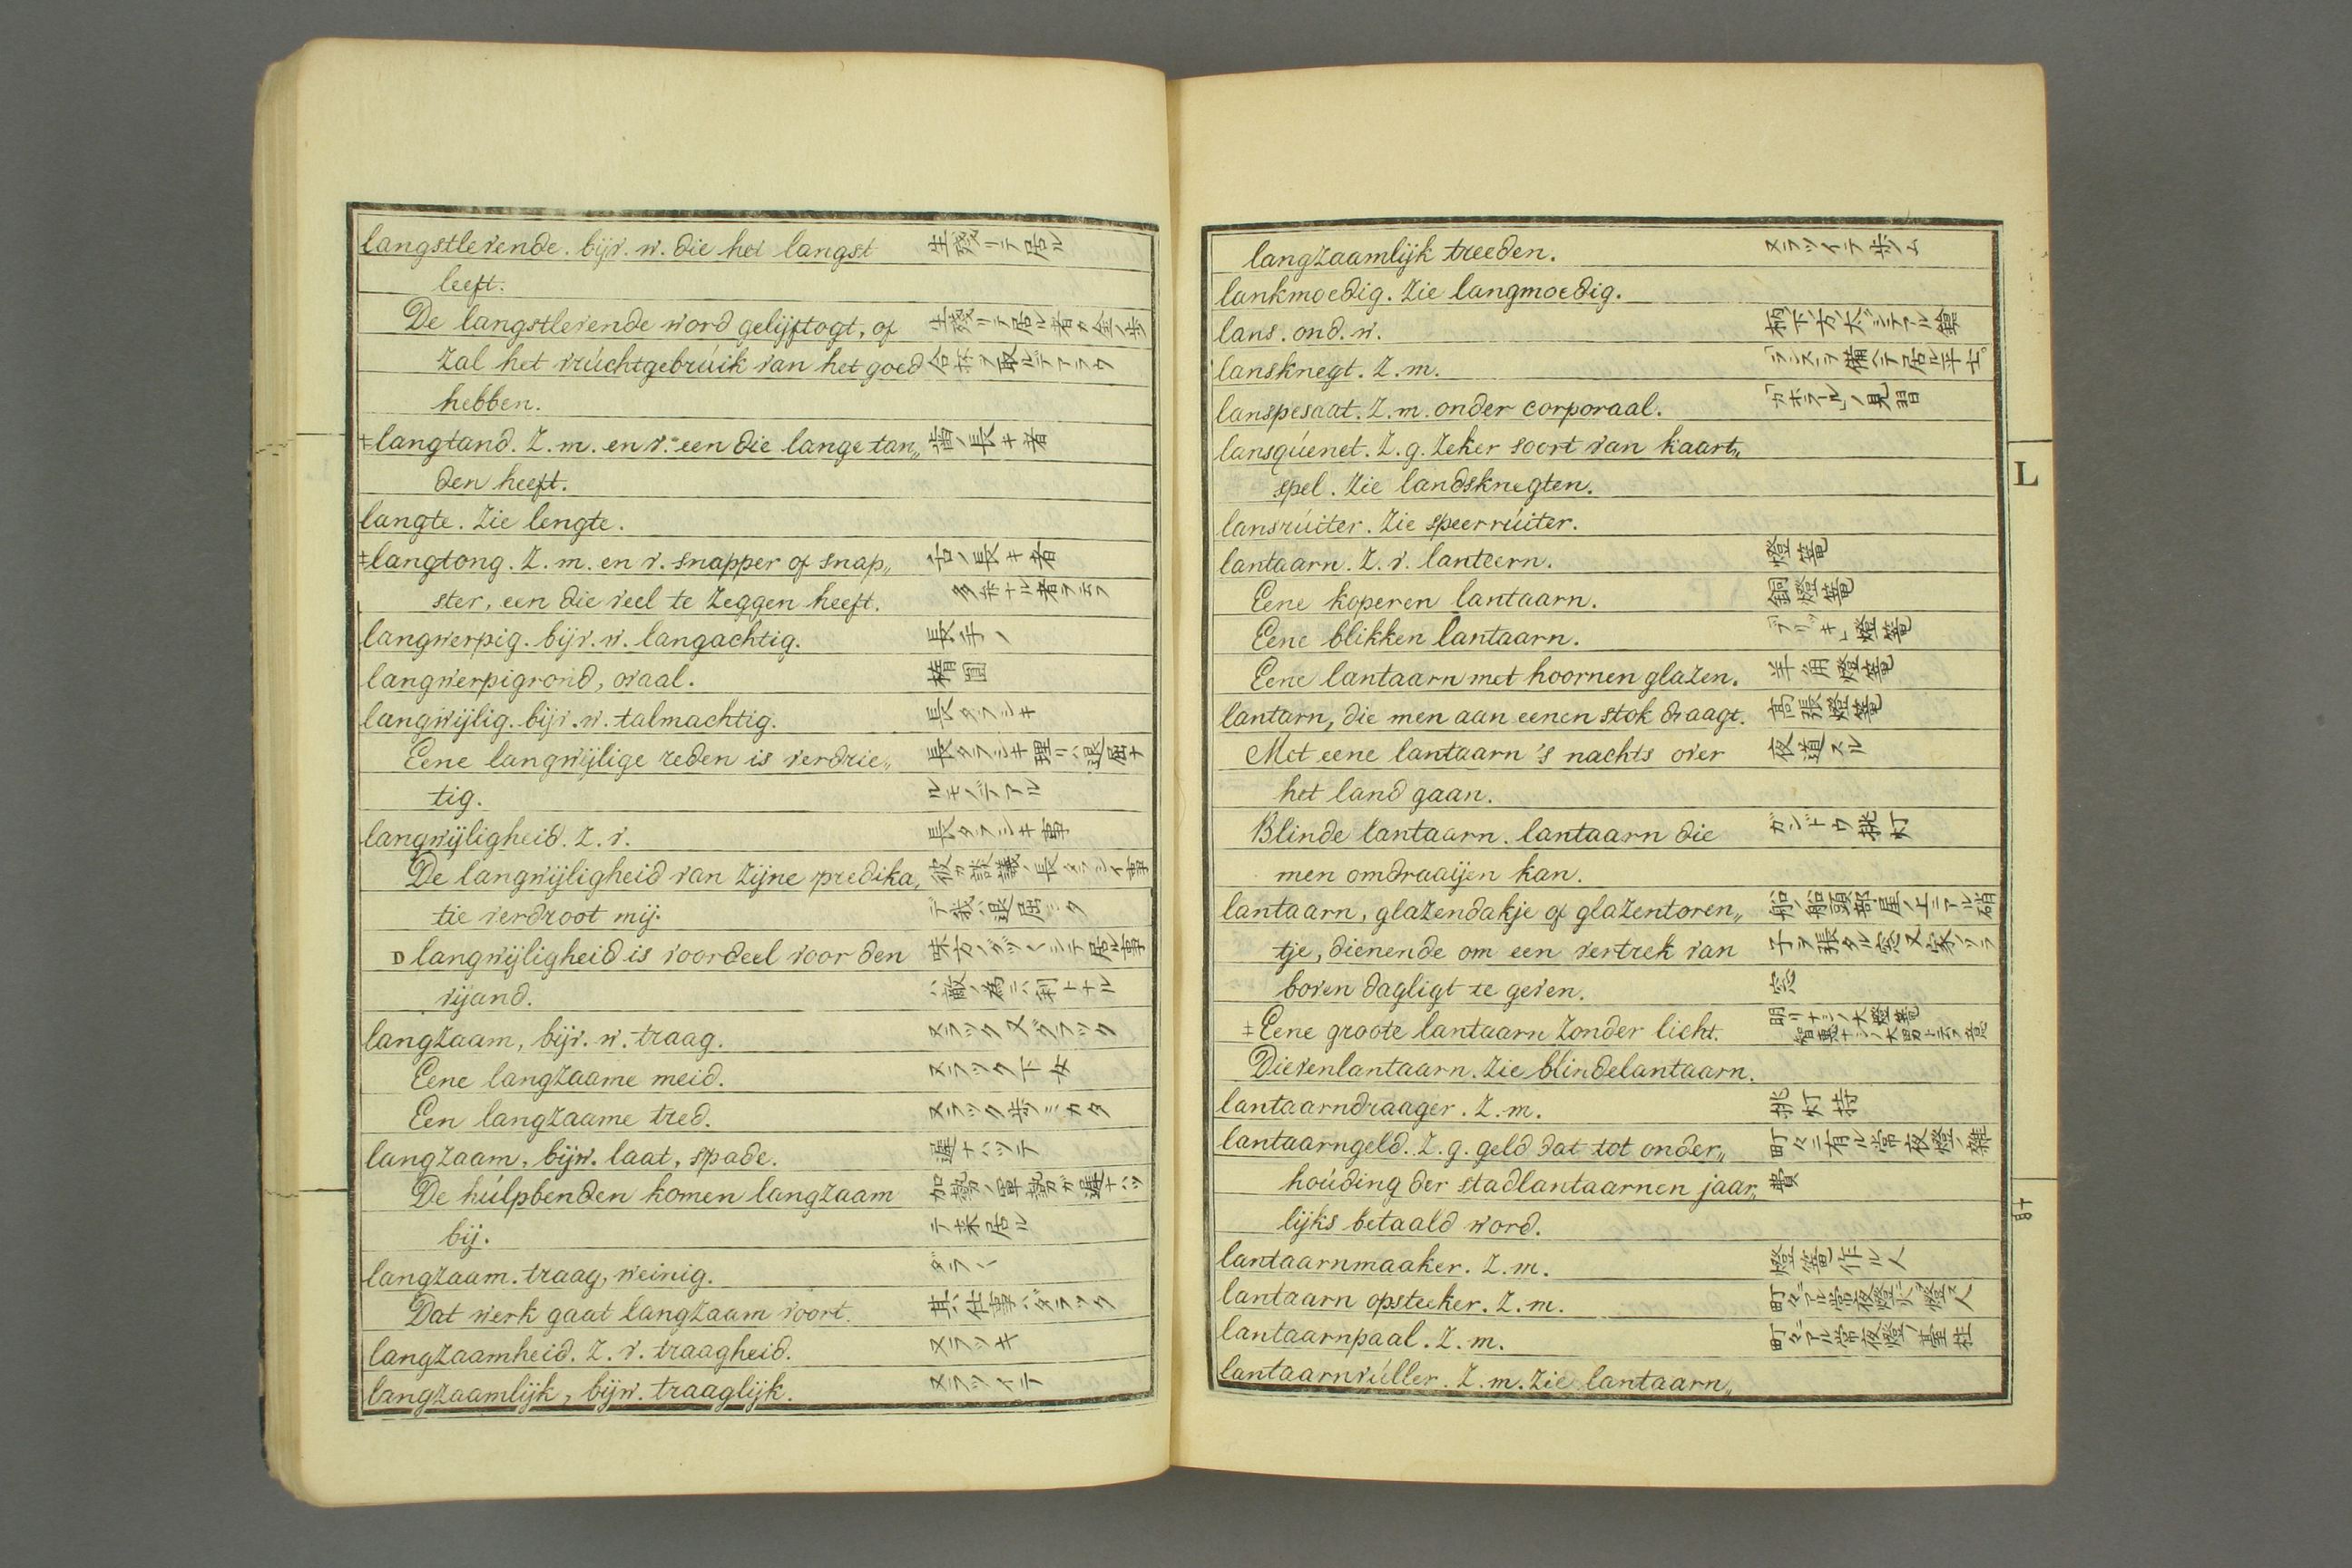 langstlevende. bijv. w. die het langst 生殘リテ居ル
leeft.
De langstlevende word gelijftogt, of 生殘リテ居ル者カ金ノ歩
zal het vrúchtgebrúik van het goed 合杯ヲ取ルデアラウ
hebben.
‡langtand. Z. m. en v. een die lange tan„ 齒ノ長キ者
den heeft.
langte. Zie lengte.
‡langtong. Z. m. en v. snapper of snap„ 舌ノ長キ者
ster, een die veel te zeggen heeft. 多弁ナル者ヲ云フ
langwerpig. bijv. w. langachtig. 長手ノ
langwerpigrond, ovaal. 楕圓
langwijlig. bijv. w. talmachtig. 長タラシキ
Eene langwijlige reden is verdrie„ 長タラシキ理リハ退屈ナ
tig. ルモノデアル
langwijligheid. Z. v. 長タラシキ事
De langwijligheid van zijne predika„ 彼ガ談議ノ長タラシイ事
tie verdroot mij. デ我ハ退屈シタ
D langwijligheid is voordeel voor den 味方ノグツ〳〵シテ居ル事
vijand. ハ敵ノ為ニハ利トナル
langzaam, bijv. w. traag. ヌラツク又グラツク
Eene langzaame meid. ヌラツク下女
Een langzaame tred. ヌラツク歩ミカタ
langzaam, bijw. laat, spade. 遲ナハツテ
De húlpbenden komen langzaam 加勢ノ軍勢ガ遲ナハツ
bij. テ来居ル
langzaam. traag, weinig. ダラ〳〵
Dat werk gaat langzaam voort. 其仕事ハダラツク
langzaamheid. Z. v. traagheid. ヌラツキ
langzaamlijk, bijw. traaglijk. ヌラツイテ
langzaamlijk treeden. ヌラツイテ歩ム
lankmoedig. Zie langmoedig.
lans. ond. w. 柄ノ下ノ方ノ太クシテアル鎗
lansknegt. Z. m. 「ランス」ヲ備ヘテ居ル平士
lanspesaat. Z. m. onder corporaal. 「カホラール」ノ見習
lansqúenet. Z. g. zeker soort van kaart„
spel. Zie landsknegten.
lansrúiter. Zie speerrúiter.
lantaarn. Z. v. lanteern. 燈篭
Eene koperen lantaarn. 銅燈篭
Eene blikken lantaarn. 「ブリツキ」燈篭
Eene lantaarn met hoornen glazen. 羊角燈篭
lantarn, die men aan eenen stok draagt. 高張燈篭
Met eene lantaarn 's nachts over 夜道スル
het land gaan.
Blinde lantaarn. lantaarn die ガンドウ挑灯
men omdraaijen kan.
lantaarn, glazendakje of glazentoren„ 船ノ船頭部屋ノ上ニアル硝
tje, dienende om een vertrek van 子ヲ張タル窓又家ノソラ
boven dagligt te geven. 窓
‡Eene groote lantaarn zonder licht. 明リナシノ大燈篭 智惠ナシノ大男ト云フ意
Dievenlantaarn. Zie blindelantaarn.
lantaarndraager. Z. m. 挑灯持
lantaarngeld. Z. g. geld dat tot onder„ 町々ニ有ル常夜燈ノ雜
hoúding der stadlantaarnen jaar„ 費
lijks betaald word.
lantaarnmaaker. Z. m. 燈篭作ル人
lantaarn opsteeker. Z. m. 町々ニアル常夜燈ニ火ヲ燈ス人
lantaarnpaal. Z. m. 町々ニアル常夜燈ノ基柱
lantaarnvúller. Z. m. Zie lantaarn„
L